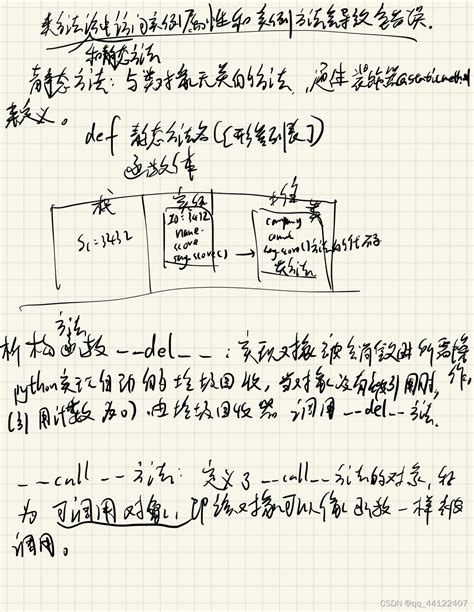 类方法当中访问实例属性和实例方法会导致错误.
和静态方法
静态方法: 与类对象无关的方法, 通过装饰器@staticmethod
来定义。
def 静态方法名([形参列表])
函数体
栈
S1=3432
实例
name
score
say_score()
类
company
count
say_score()方法的代码
类方法
方法
析构函数 __del__: 实现对象被销毁时所需操作,
python实现自动的垃圾回收, 当对象没有被引用时,
(引用计数为0) 由垃圾回收器 调用 __del__方法.
__call__方法: 定义了__call__方法的对象, 称
为 可调用对象, 即该对象可以像函数一样被
调用。
CSDN @qq_44122407